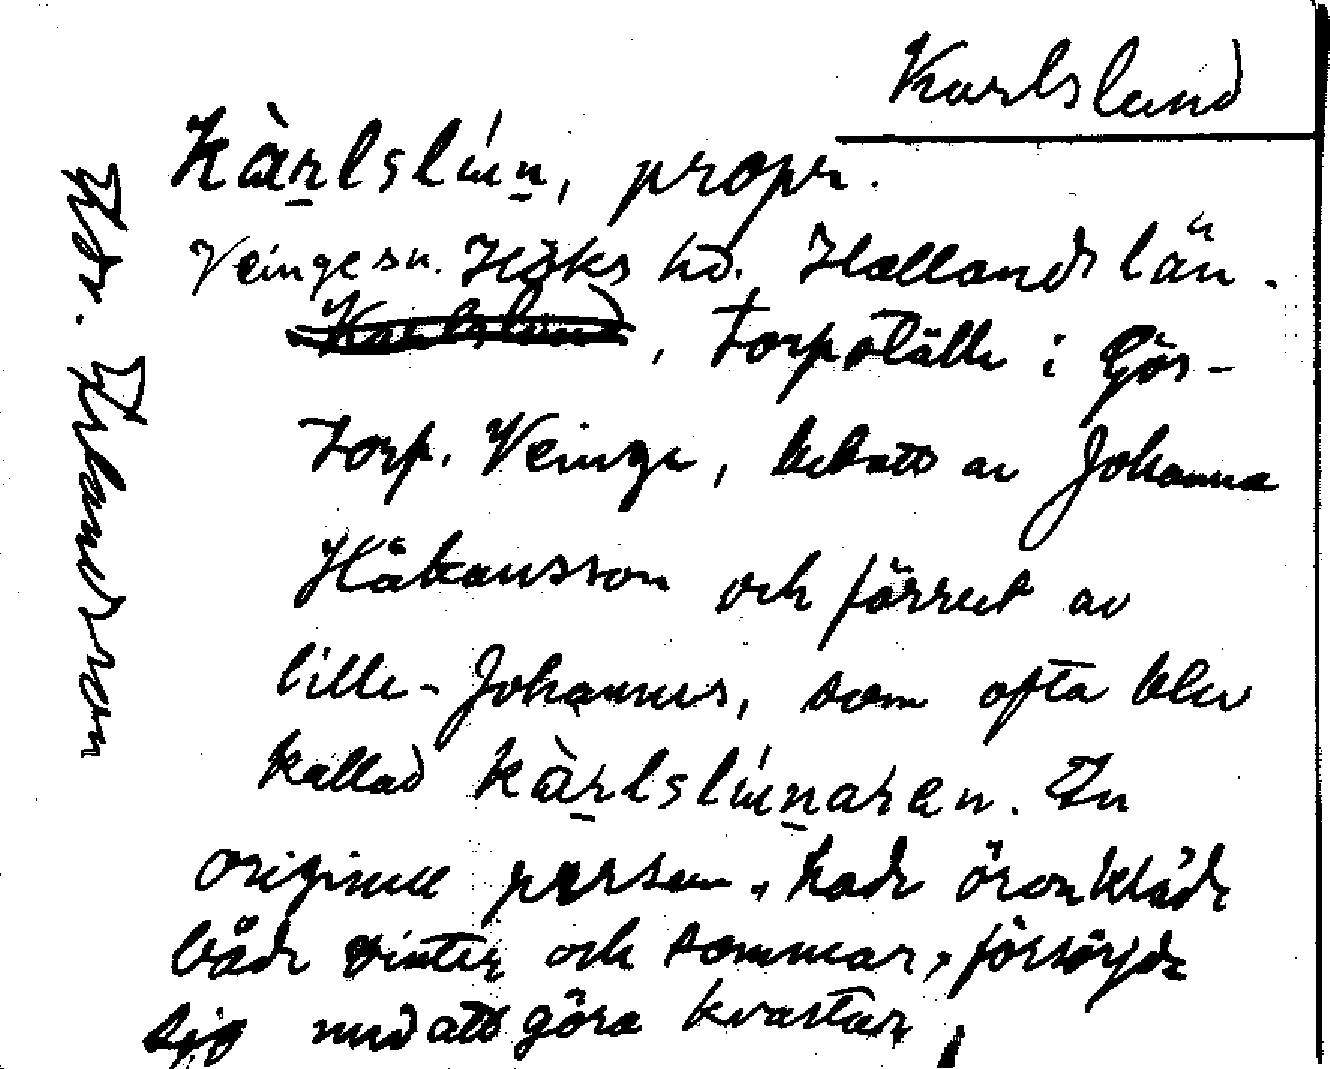 Karlslund
Kàrlslún, propr.
Veinge sn. Höks hd. Hallands län.
Karlslund, torpställe i Gös-
torp. Veinge, bebott av Johanna
Håkansson och förrut av
lille-Johannes, som ofta blev
kallad kàrlslúnaren. En
originell person, hade öronkläde
både vinter och sommar, försörjde
sig med att göra kvastar,